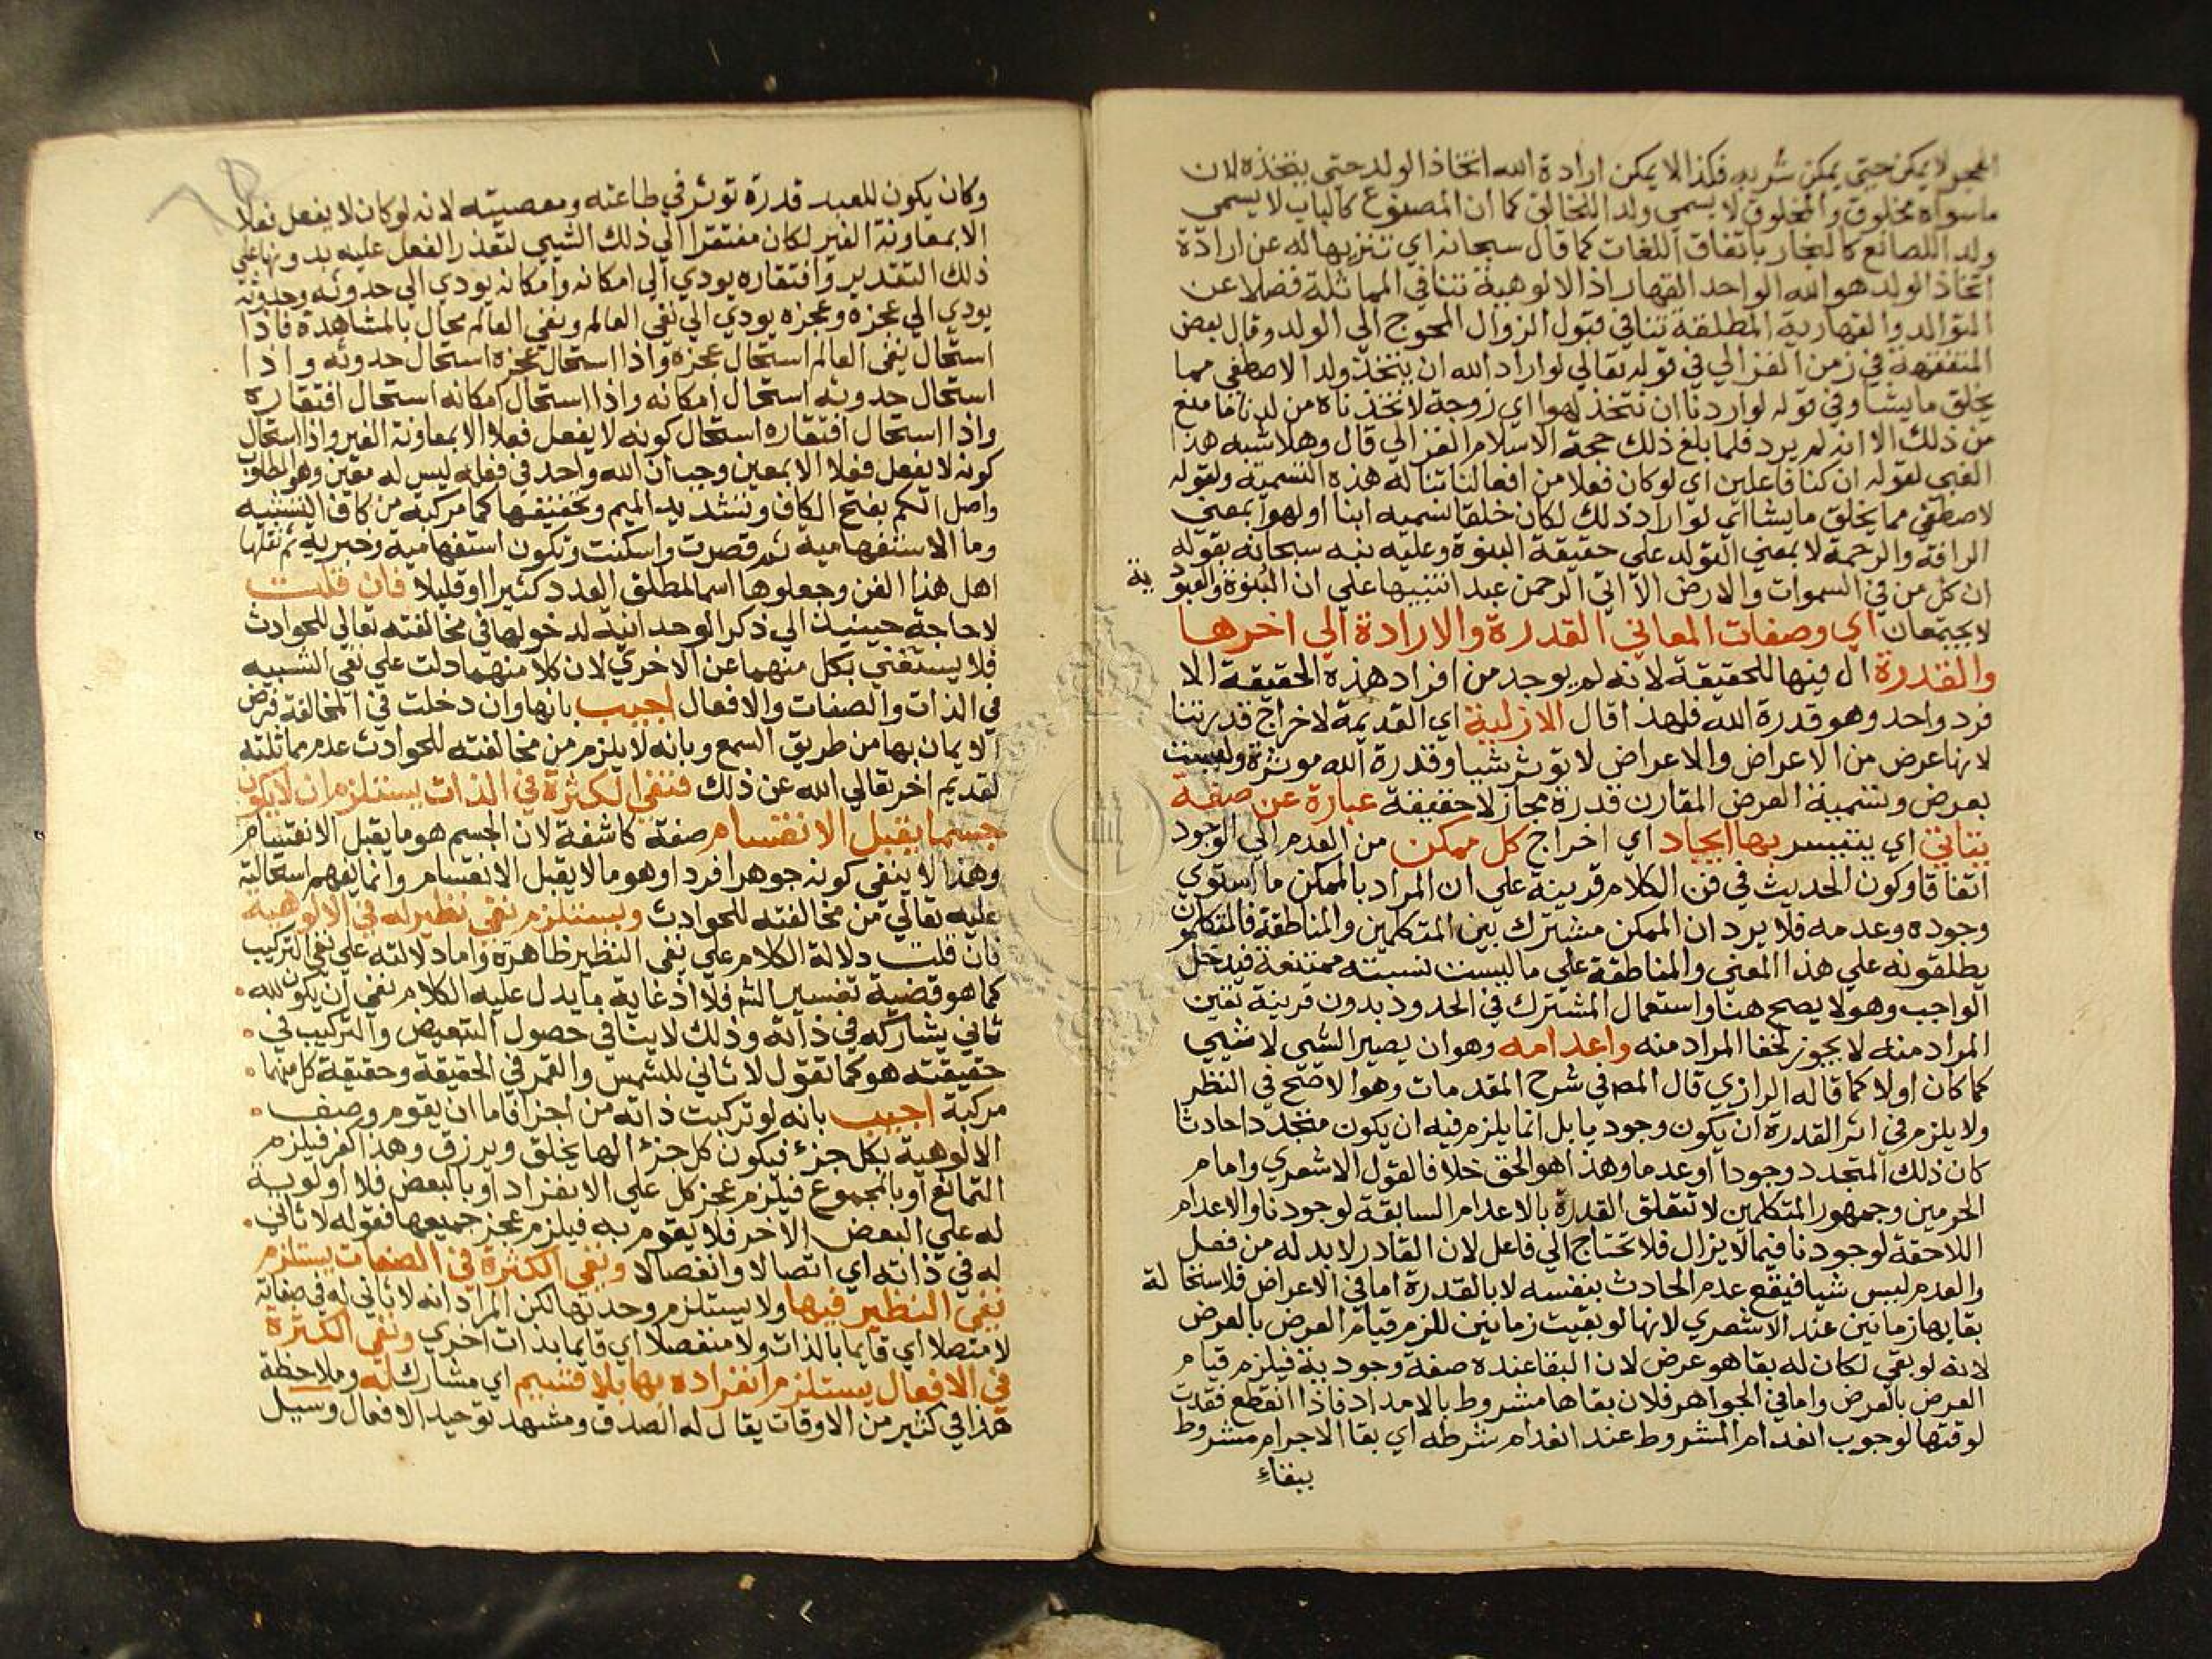 الحجر لا يمكن حتى يمكن شربه فكذا لا يمكن ارادة الله اتخاذ الولد حتى يتخذه لان
ما سواه مخلوق والمخلوق لا يسمي ولدا للخالق كما ان المصنوع كالباب لا يسمي
ولدا للصانع كالنجار باتفاق اللغات كما قال سبحانه اي تنزيها له عن ارادة
اتخاذ الولد هو الله الواحد القهار اذ الالوهية تنافي المماثلة فضلا عن
التوالد والقهارية المطلقة تنافي قبول الزوال المحوج الي الولد وقال بعض
المتفقهة في زمن الغزالي في قوله تعالي لو اراد الله ان يتخذ ولدا لاصطفي مما
يخلق ما يشا وفي قوله لو اردنا ان نتخذ لهوا اي زوجة لاتخذناه من لدنا ما منع
من ذلك الا انه لم يرد فلما بلغ ذلك حجة الاسلام الغزالي قال وهلا شبه هذا
الغبي لقوله ان كنا فاعلين اي لو كان فعلا من افعالنا تناله هذه التسمية ولقوله
لاصطفي مما يخلق ما يشا اي لو اراد ذلك لكان خلقا نسميه ابنا او لهوا بمعني
الرافة والرحمة لا بمعني التولد علي حقيقة البنوة وعليه نبه سبحانه بقوله
ان كل من في السموات والارض الا اتي الرحمن عبدا تنبيها علي ان البنوة والعبودية
لا يجتمعان اي وصفات المعاني القدرة والارادة الي اخرها
والقدرة ال فيها للحقيقة لانه لم يوجد من افراد هذه الحقيقة الا
فرد واحد وهو قدرة الله فلهذا قال الازلية اي القديمة لاخراج قدرتنا
لانها عرض من الاعراض والاعراض لا توثر شيا وقدرة الله موثرة وليست
بعرض وتسمية العرض المقارن قدرة مجاز لا حقيقة عبارة عن صفة
يتاتي اي يتيسر بها ايجاد اي اخراج كل ممكن من العدم الي الوجود
اتفاقا وكون الحديث في فن الكلام قرينة علي ان المراد بالممكن ما استوي
وجوده وعدمه فلا يرد ان الممكن مشترك بين المتكلمين والمناطقة فالمتكلمون
يطلقونه علي هذا المعني والمناطقة علي ما ليست نسبته ممتنعة فيدخل
الواجب وهو لا يصح هنا واستعمال المشترك في الحدود بدون قرينة تعين
المراد منه لا يجوز لخفا المراد منه واعدامه وهو ان يصير الشي لا شيي
كما كان اولا كما قاله الرازي قال المص في شرح المقدمات وهو الاصح في النظر
ولا يلزم في اثر القدرة ان يكون وجوديا بل انما يلزم فيه ان يكون متجددا حادثا
كان ذلك المتجدد وجودا او عدما وهذا هو الحق خلافا لقول الاشعري وامام
الحرمين وجمهور المتكلمين لا تتعلق القدرة بالاعدام السابقة لوجودنا والاعدام
اللاحقة لوجودنا فيما لا يزال فلا تحتاج الي فاعل لان القادر لا بد له من فعل
والعدم ليس شيا فيقع عدم الحادث بنفسه لا بالقدرة اما في الاعراض فلاستحالة
بقايها زمانين عند الاشعري لانها لو بقيت زمانين للزم قيام العرض بالعرض
لانه لو بقي لكان له بقا هو عرض لان البقا عنده صفة وجودية فيلزم قيام
العرض بالعرض واما في الجواهر فلان بقاها مشروط بالامداد فاذا انقطع فقدت
لوقتها لوجوب انعدام المشروط عند انعدام شرطه اي بقا الاجرام مشروط
ببقاء
وكان يكون للعبد قدرة توثر في طاعته ومعصيته لانه لو كان لا يفعل فعلا
الا بمعاونة الغير لكان مفتقرا الي ذلك الشيي لتعذر الفعل عليه بدونها علي
ذلك التقدير وافتقاره يودي الي امكانه وامكانه يودي الي حدوثه وحدوثه
يودي الي عجزه وعجزه يودي الي نفي العالم ونفي العالم محال بالمشاهدة فاذا
استحال نفي العالم استحال عجزه واذا استحال عجزه استحال حدوثه واذا
استحال حدوثه استحال امكانه واذا استحال امكانه استحال افتقاره
واذا استحال افتقاره استحال كونه لا يفعل فعلا الا بمعاونة الغير واذا استحال
كونه لا يفعل فعلا الا بمعين وجب ان الله واحد في فعله ليس له معين وهو المطلوب
واصل الكم بفتح الكاف وتشديد الميم وتخفيفها كما مركبة من كاف التشبيه
وما الاستفهامية ثم قصرت واسكنت وتكون استفهامية وخبرية ثم نقلها
اهل هذا الفن وجعلوها اسما لمطلق العدد كثيرا او قليلا فان قلت
لا حاجة حينيذ الي ذكر الوحدانية لدخولها في مخالفته تعالي للحوادث
فلا يستغني بكل منهما عن الاخري لان كلا منهما دلت علي نفي الشبيه
في الذات والصفات والافعال اجيب بانها وان دخلت في المخالفة فرض
الايمان بها من طريق السمع وبانه لا يلزم من مخالفته للحوادث عدم مماثلته
لقديم اخر تعالي الله عن ذلك فنفي الكثرة في الذات يستلزم ان لا يكون
جسما يقبل الانقسام صفة كاشفة لان الجسم هو ما يقبل الانقسام
وهذا لا ينفي كونه جوهرا فردا وهو ما لا يقبل الانقسام وانما يفهم استحالته
عليه تعالي من مخالفته للحوادث ويستلزم نفي نظير له في الالوهية
فان قلت دلالة الكلام علي نفي النظير ظاهرة واما دلالته علي نفي التركيب
كما هو قضية تفسير الش فلا اذ غاية ما يدل عليه الكلام نفي ان يكون لله
ثاني يشاركه في ذاته وذلك لا ينافي حصول التبعيض والتركيب في
حقيقته هو كما تقول لا ثاني للشمس والقمر في الحقيقة وحقيقة كل منهما
مركبة اجيب بانه لو تركبت ذاته من اجزا فاما ان يقوم وصف
الالوهية بكل جزء فيكون كل جزء الها يخلق ويرزق وهذا كفر فيلزم
التمانع او بالمجموع فيلزم عجز كل علي الانفراد او بالبعض فلا اولوية
له علي البعض الاخر فلا يقوم به فيلزم عجز جميعها فقوله لا ثاني
له في ذاته اي اتصالا وانفصالا ونفي الكثرة في الصفات يستلزم
نفي النظير فيها ولا يستلزم وحدتها لكن المراد انه لا ثاني له في صفاته
لا متصلا اي قايما بالذات ولا منفصلا اي قايما بذات اخري ونفي الكثرة
في الافعال يستلزم انفراده بها بلا قسيم اي مشارك له وملاحظة
هذا في كثير من الاوقات يقال له الصدق ومشهد توحيد الافعال وسيل